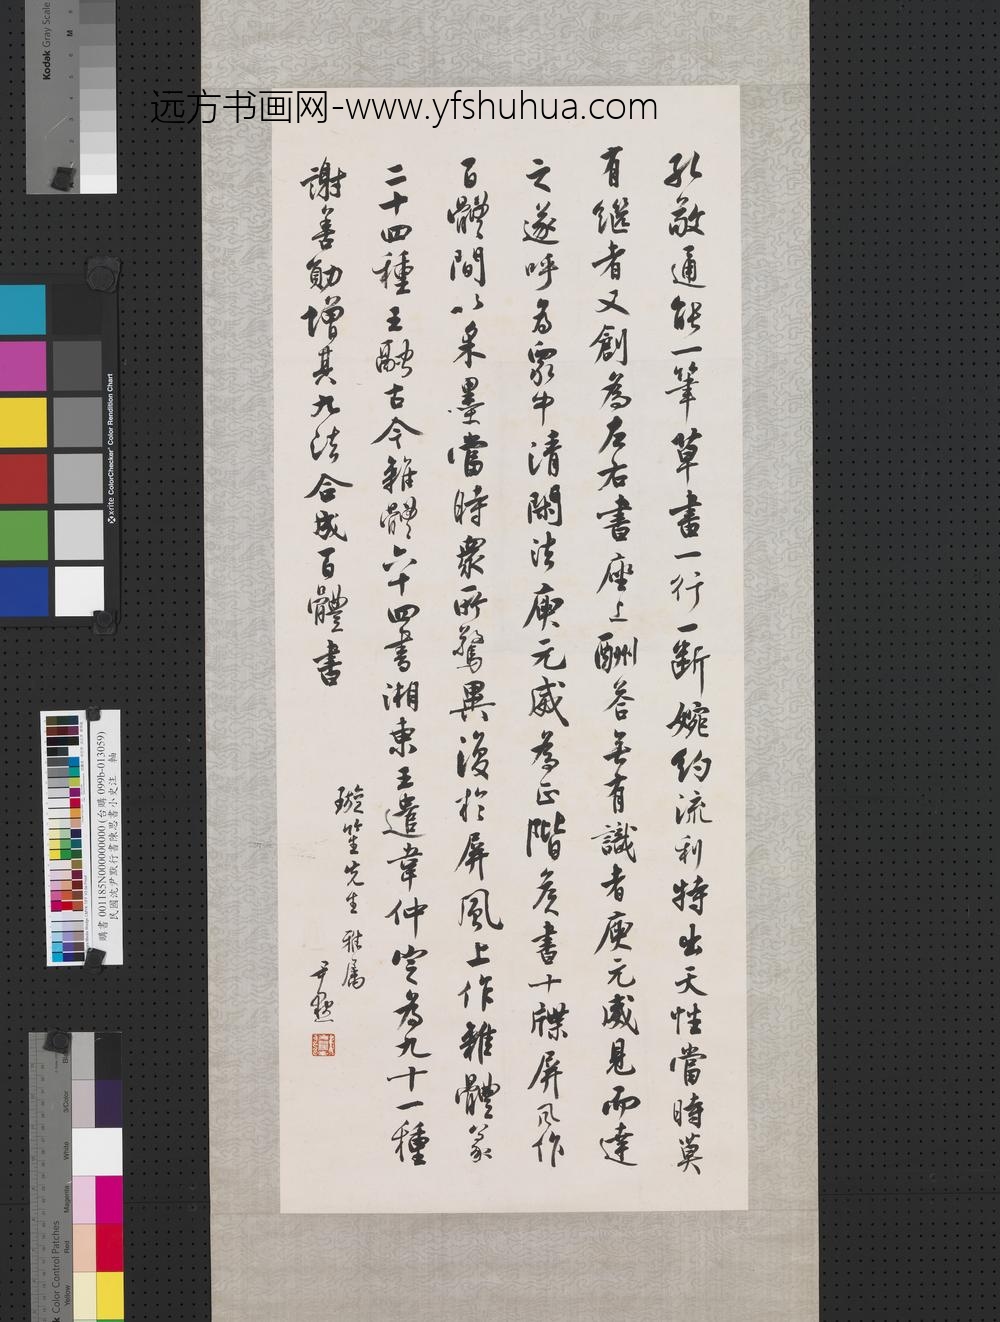 远方书画网-www.yfshuhua.com
孔敬通能一筆草書一行一斷婉約流利特出天性當時莫
有繼者又創為左右書座上酬答無有識者庾元威見而達
之遂呼為眾中清閑法庾元威為正階侯書十牒屏風作
百體間以采墨當時眾所驚異後於屏風上作雜體篆
二十四種王融古今雜體六十四書湘東王遣韋仲定為九十一種
謝善勛增其九法合成百體書
璇笙先生 雅屬
尹默
Kodak Gray Scale
M
x-rite ColorChecker Color Rendition Chart
購書 001185N000000000 (台購 099b-013059)
民國沈尹默行書陳思書小史注 軸
Color Control Patches
3/Color
White
Magenta
Red
Yellow